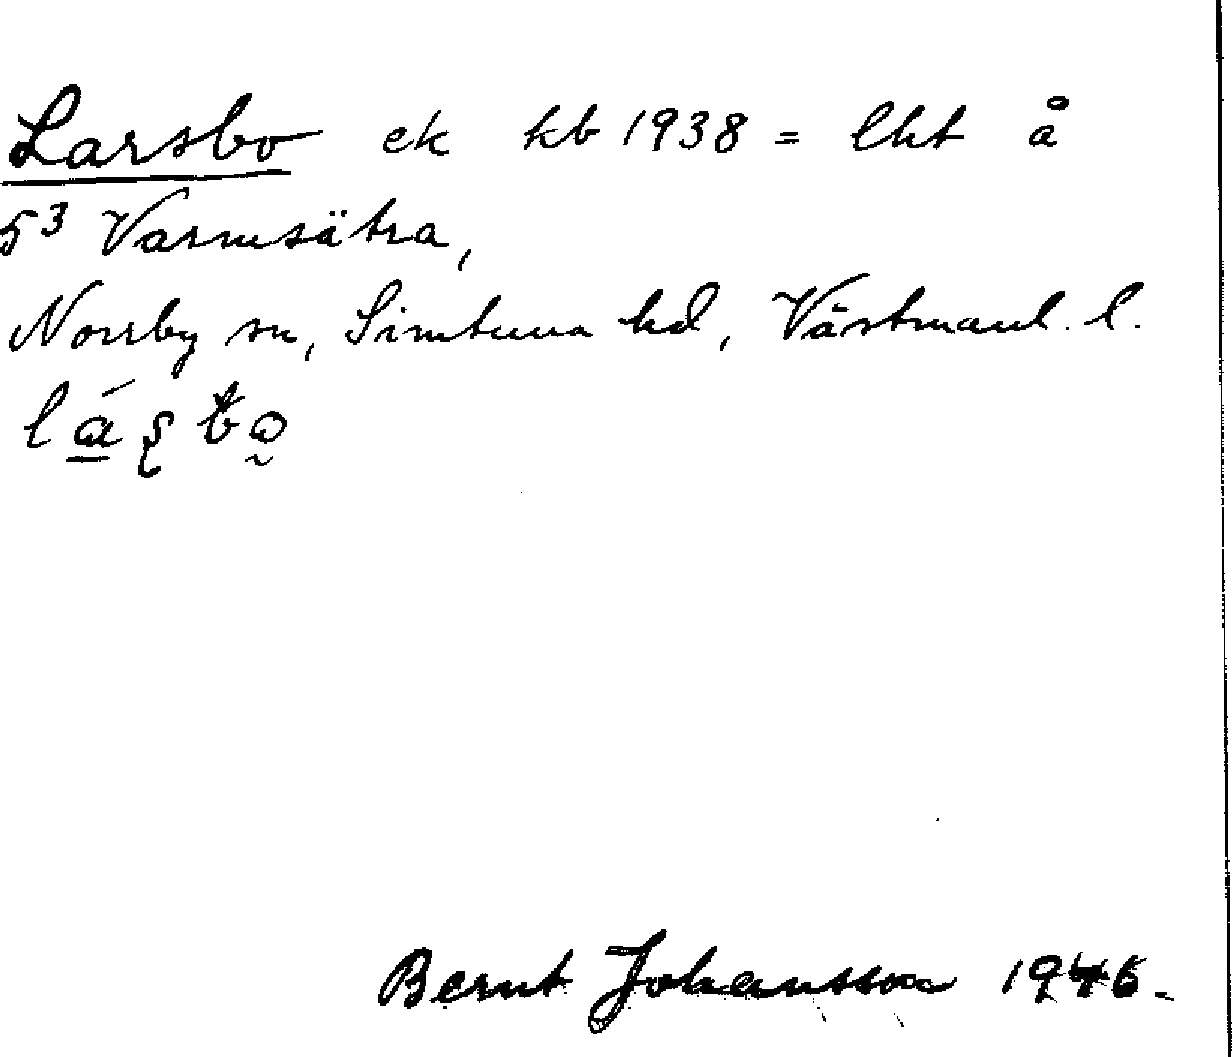 Larsbo ek kb 1938 = lht å
5³ Varmsätra,
Norrby sn, Simtuna hd, Västmanl. l.
Bernt Johansson 1946.